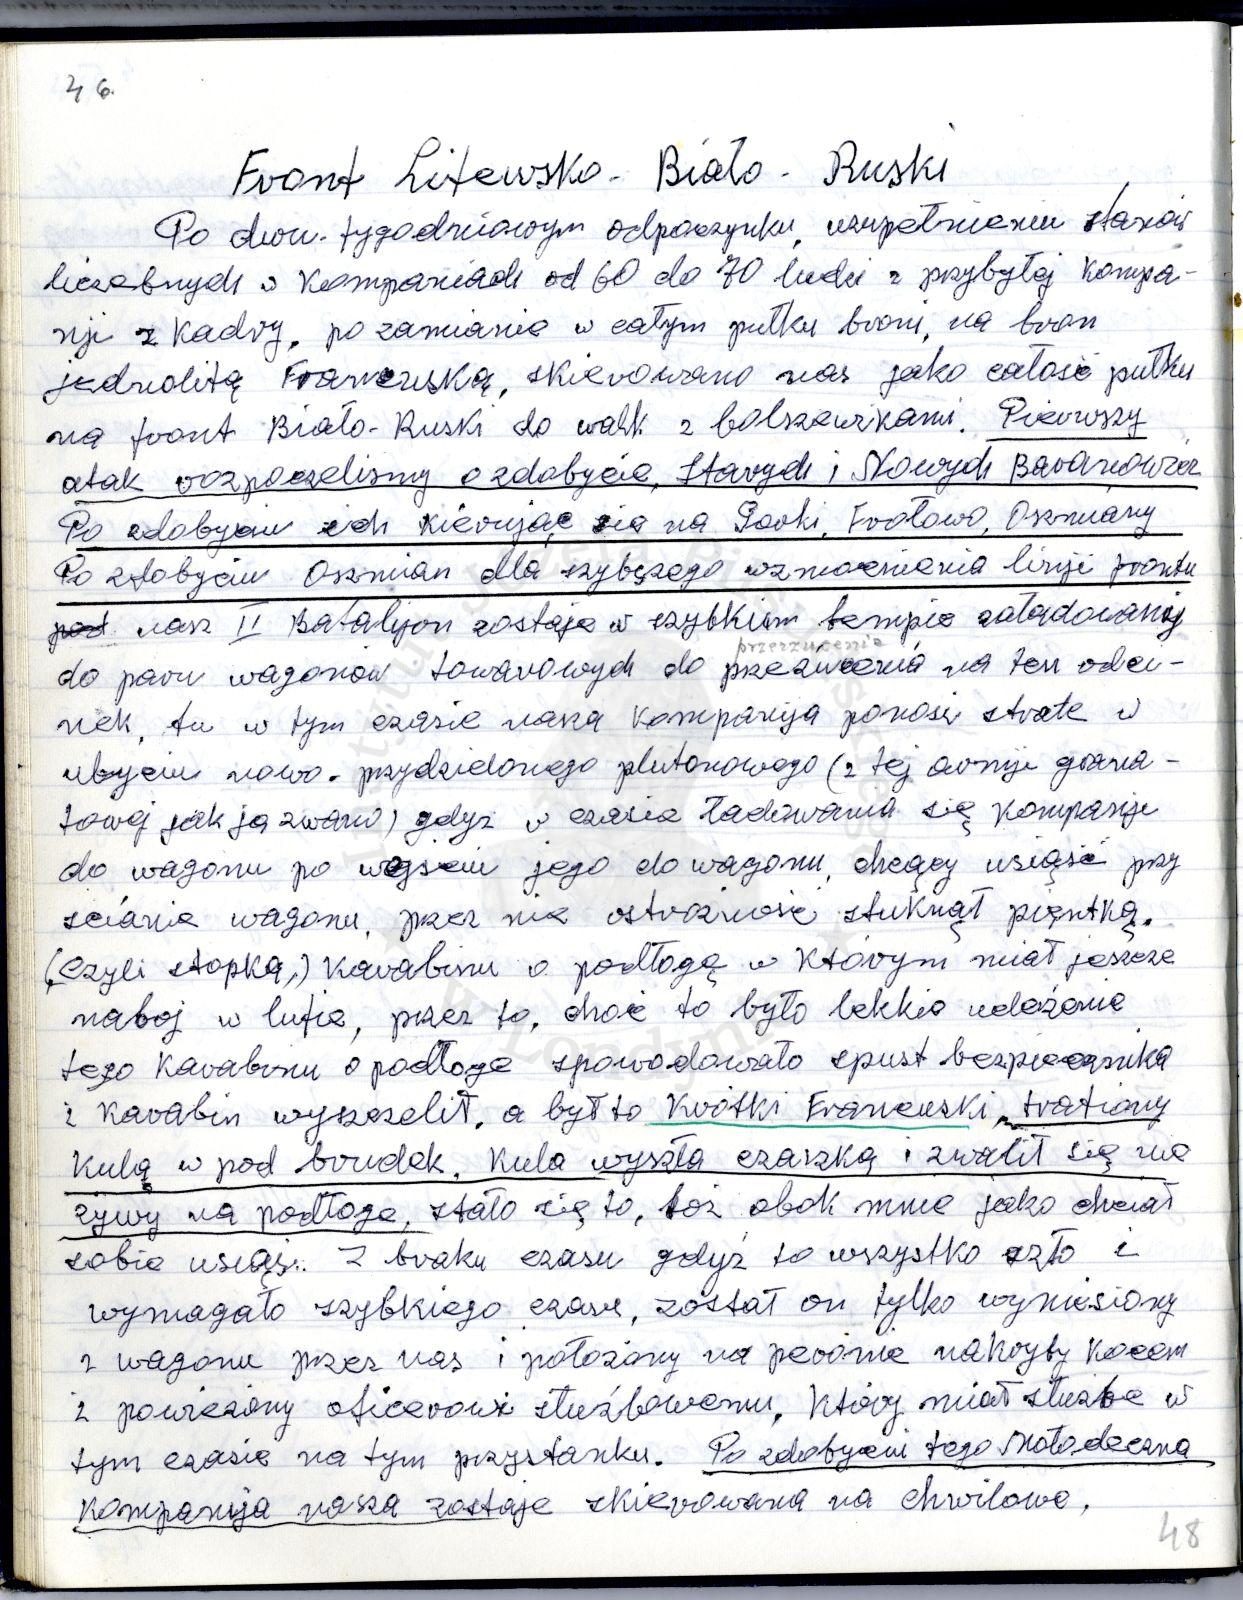 46.
Front Litewsko - Biało - Ruski
Po dwu-tygodniowym odpoczynku, uzupełnieniu stanów
liczebnych w Kompaniach od 60 do 70 ludzi z przybyłej Kompa-
nji z Kadry, po zamianie w całym pułku broni, na bron
jednolitą Francuską, skierowano nas jako całość pułku
na front Biało-Ruski do walk z bolszewikami. Pierwszy
atak rozpoczelismy o zdobycie, Starych i Nowych Baranowicz
Po zdobyciu ich Kierując się na Horki, Frołowo, Oszmiany
Po zdobyciu Oszmian dla szybszego wzmocnienia linji frontu
nasz II Bataljon zostaje w szybkim tempie załadowany
przerzucenia
do paru wagonów towarowych do na ten odci-
nek, tu w tym czasie nasza Kompanija ponosi strate w
ubyciu nowo-przydzielonego plutonowego (z tej armji
jak ją zwano) gdyż w czasie ładowania się Kompanije
do wagonu po wejściu jego do wagonu, chcący usiąść przy
ścianie wagonu, przez nie ostrożność stuknął piętką.
(czyli stopką,) Karabinu o podłogą w Którym miał jeszcze
naboj w lufie, przez to, choć to było lekkie udeżenie
tego Karabinu o podłoge spowodowało spust bezpiecznika
i Karabin wyszczelił, a był to Krótki Francuski, trafiony
Kulą w pod brudek. Kula wyszła czaszką i zwalił się nie
żywy na podłoge, stało się to, toż obok mnie jako chciał
sobie usiąś. Z braku czasu gdyż to wszystko szło i
wymagało szybkiego czasu, został on tylko wyniesiony
z wagonu przez nas i położony na peronie nakryty Kocem
i powiezony oficerowi służbowemu, Który miał służbe w
tym czasie na tym przystanku. Po zdobyciu tego Mołodeczna
Kompanija nasza zostaje skierowana na chwilowe,
48
Instytut Józefa Piłsudskiego
w Londynie